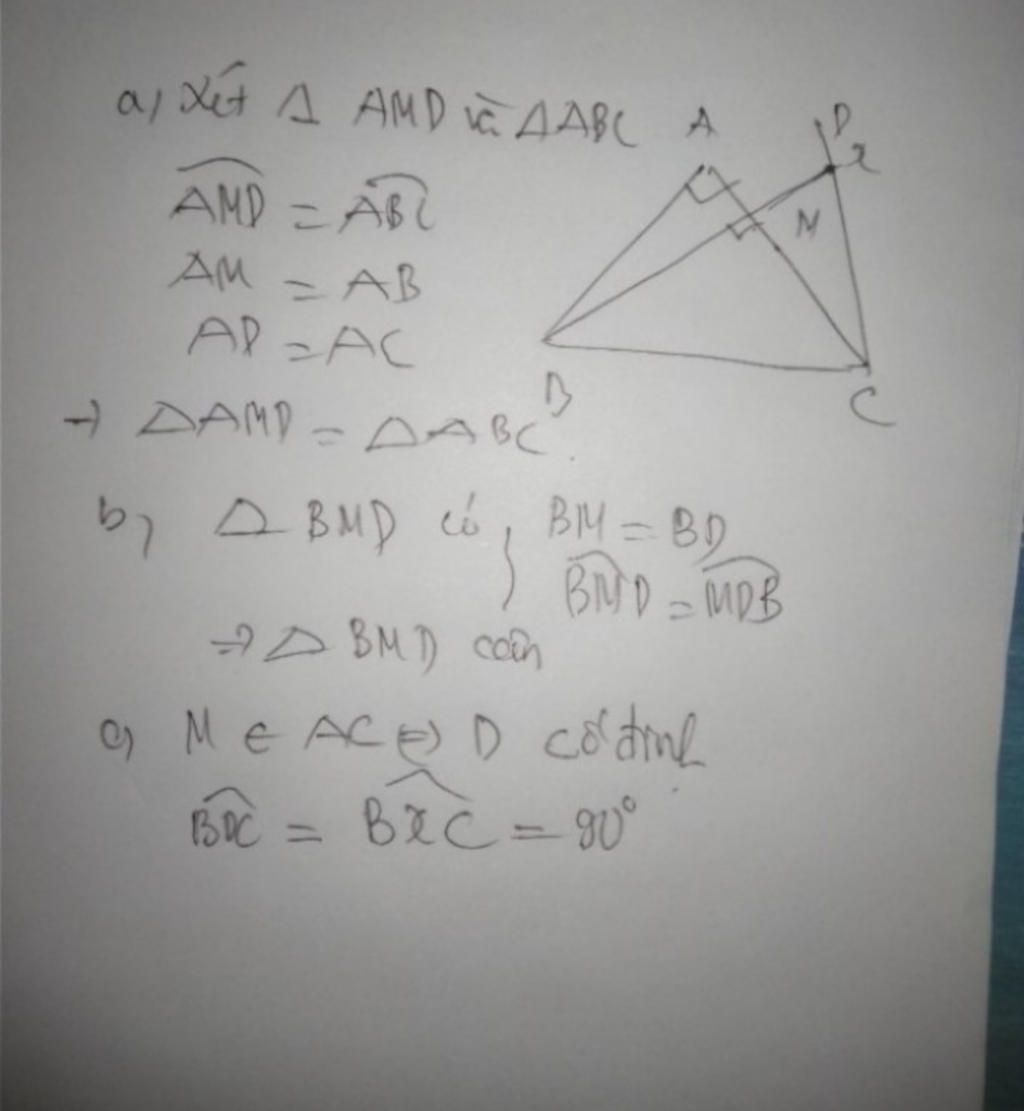 a, Xét Δ AMD và ΔABC
A D
x
AMD = ABC
M
AM = AB
AD = AC
B C
→ ΔAMD = ΔABC.
b, Δ BMD có, BM = BD
BMD = MDB
⇒ Δ BMD cân
c, M ∈ AC ⇔ D cố định
BDC = BxC = 90°